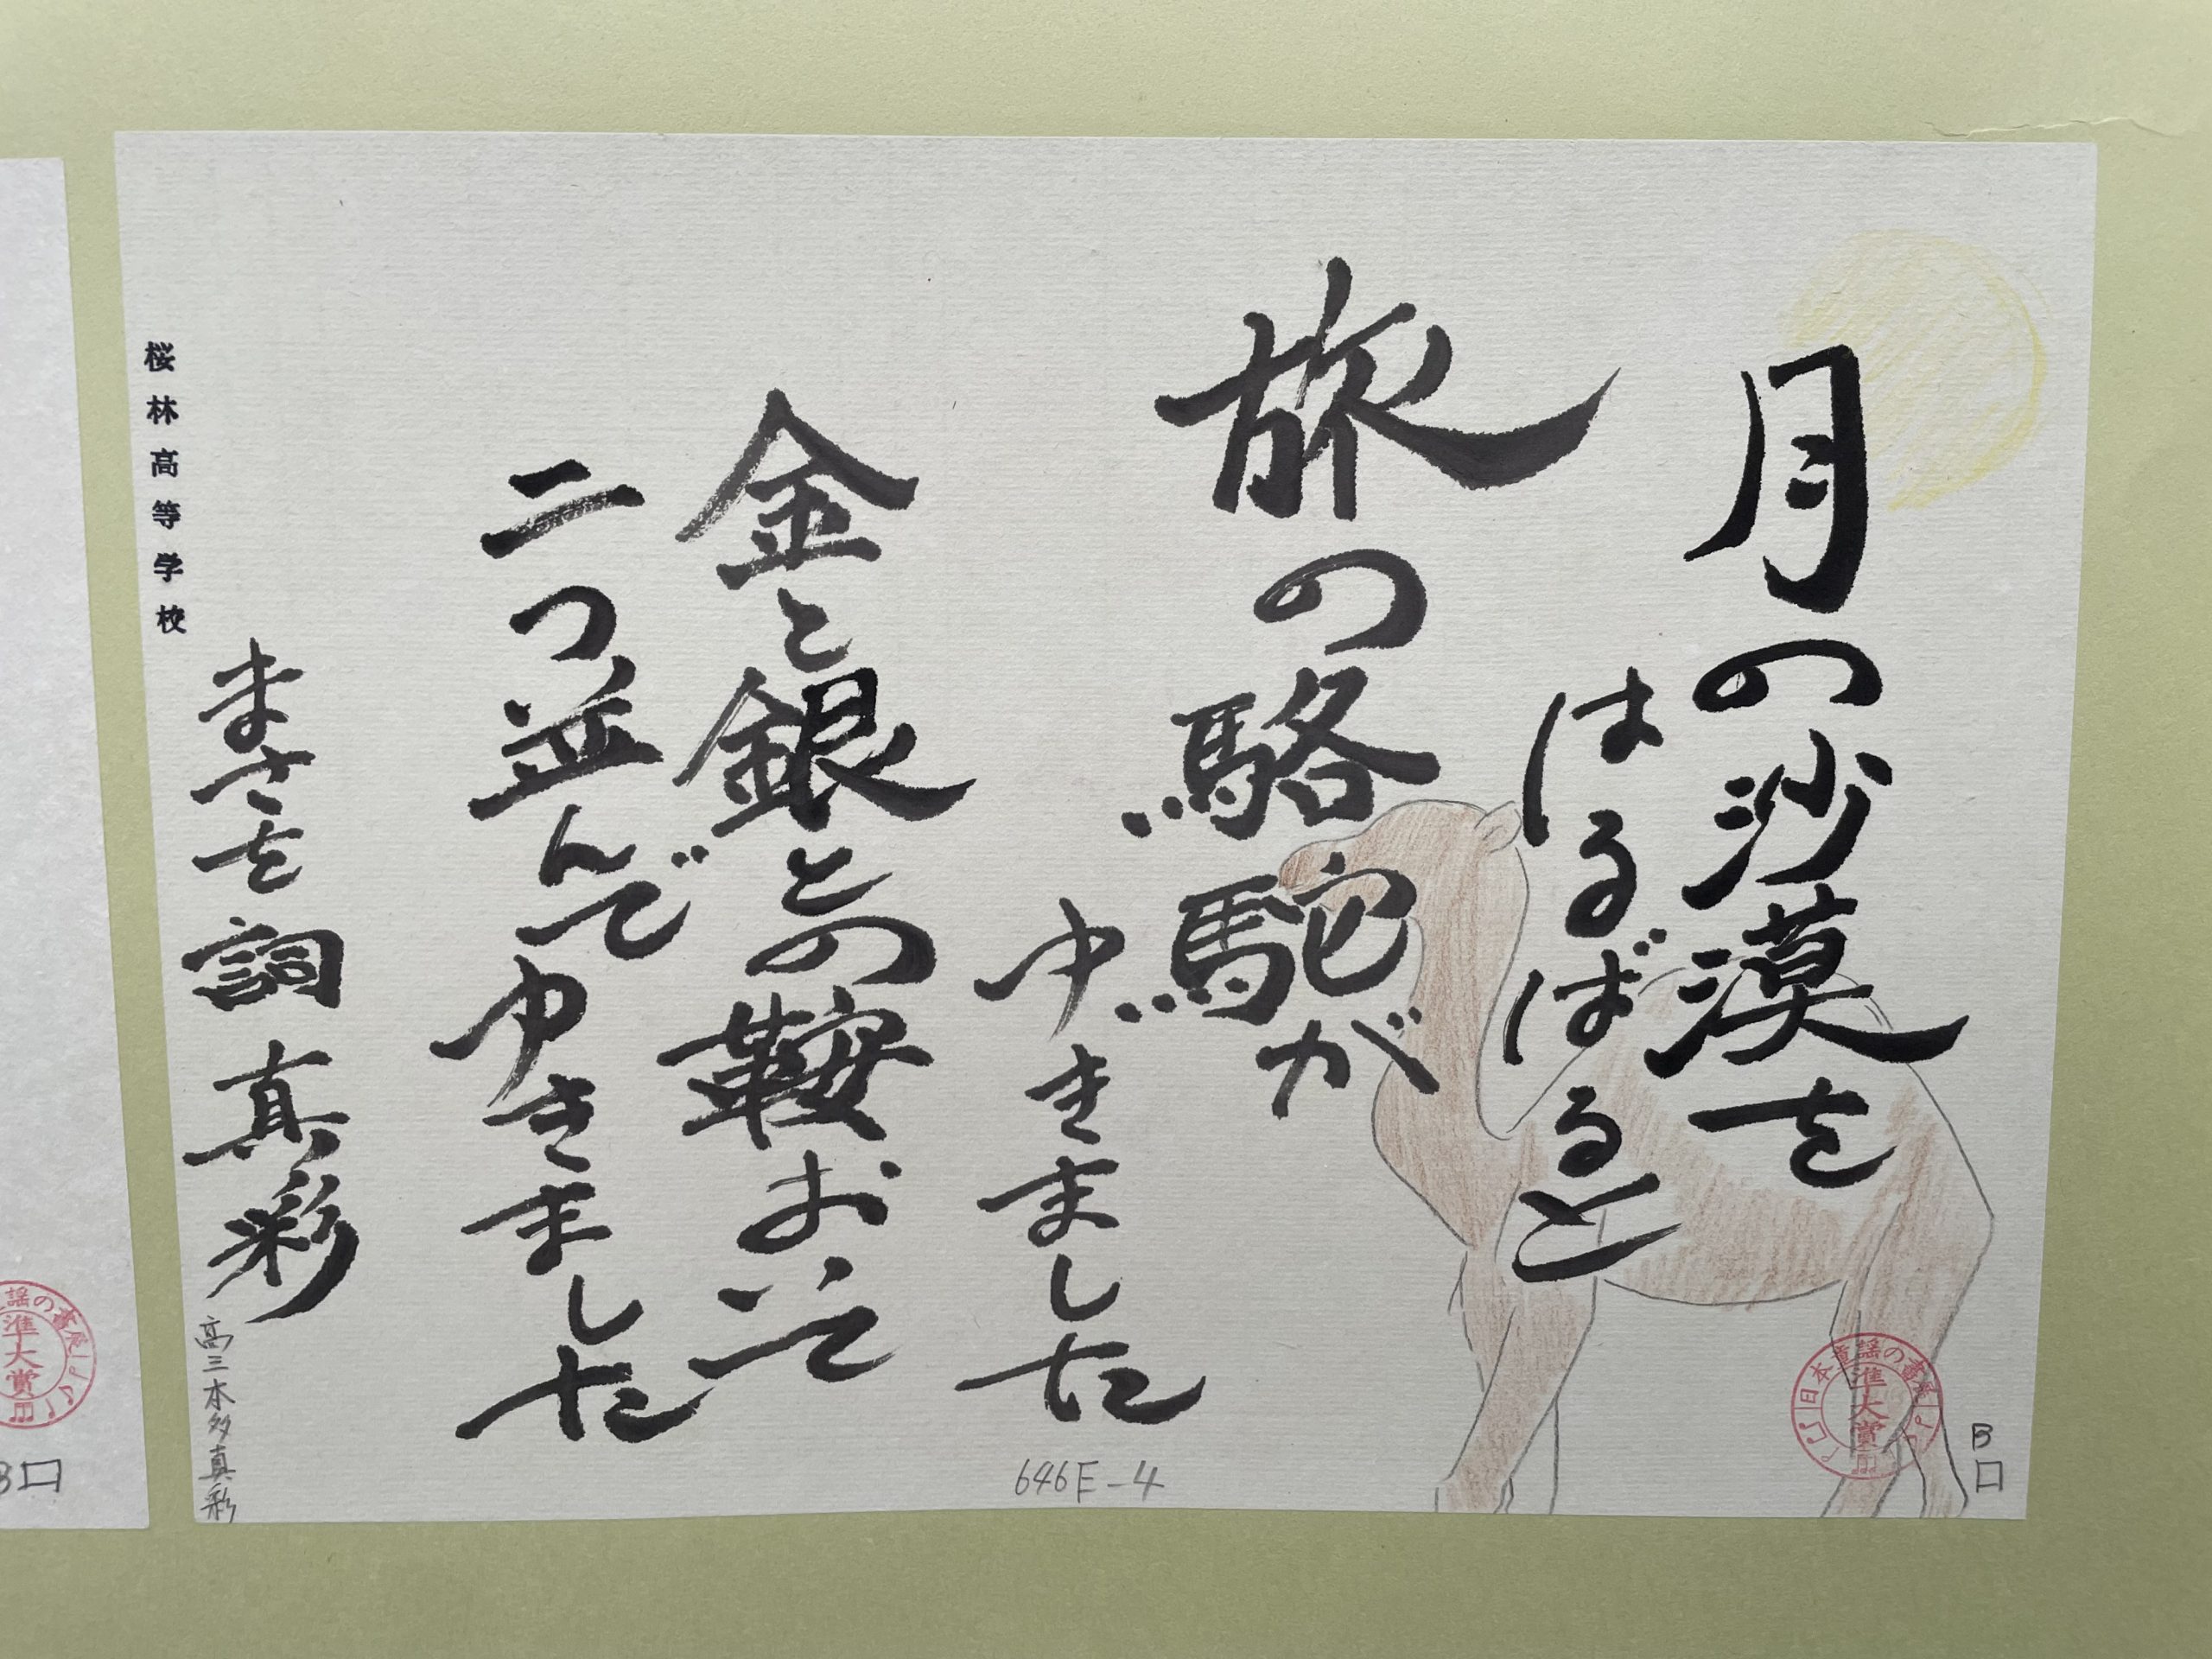 月の沙漠を
はるばると
旅の駱駝が
ゆきました
金と銀との鞍おいて
二つ並んでゆきました
まさを詞 真彩
桜林高等学校
高三 本多真彩
646E-4
日本童謡の書展
準大賞
B口
謡の書展
準大賞
B口